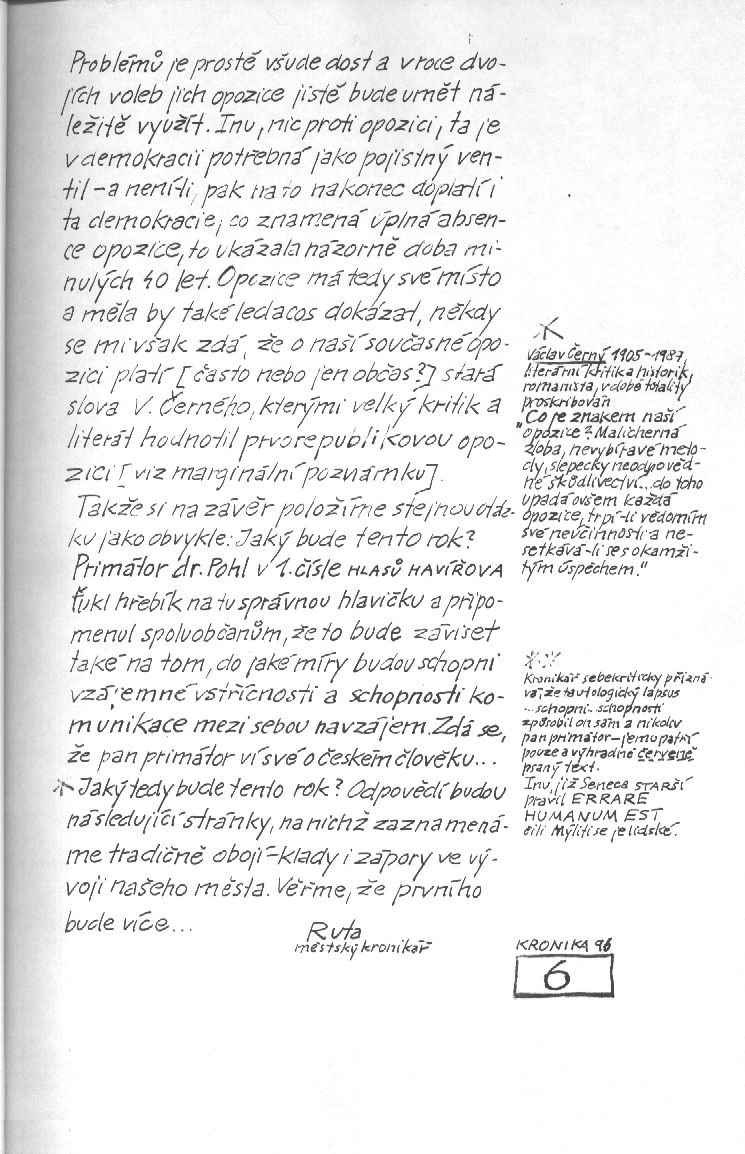 Problémů je prostě všude dost a v roce dvo-
jích voleb jich opozice jistě bude umět ná-
ležitě využít. Inu, nic proti opozici, ta je
v demokracii potřebná jako pojistný ven-
til – a není-li, pak na to nakonec doplatí i
ta demokracie; co znamená úplná absen-
ce opozice, to ukázala názorně doba mi-
nulých 40 let. Opozice má tedy své místo
a měla by také ledacos dokázat, někdy
se mi však zdá, že o naší současné opo-
zici platí [často nebo jen občas?] stará
slova V. Černého, kterými velký kritik a
literát hodnotil prvorepublikovou opo-
zici [viz marginální poznámku].
Takže si na závěr položíme stejnou otáz-
ku jako obvykle: Jaký bude tento rok?
Primátor dr. Pohl v 1. čísle HLASŮ HAVÍŘOVA
ťukl hřebík na tu správnou hlavičku a připo-
menul spoluobčanům, že to bude záviset
také na tom, do jaké míry budou schopni
vzájemné vstřícnosti a schopnosti ko-
munikace mezi sebou navzájem. Zdá se,
že pan primátor ví své o českém člověku...
* Jaký tedy bude tento rok? Odpovědí budou
následující stránky, na nichž zaznamená-
me tradičně obojí – klady i zápory ve vý-
voji našeho města. Věřme, že prvního
bude více...
Ruta
městský kronikář
*
Václav Černý 1905–1987,
literární kritik a historik,
romanista, v době totality
proskribován
„Co je znakem naší
opozice? Malicherná
zloba, nevybíravé meto-
dy, slepecky neodpověd-
né škůdlivectví... do toho
upadá ovšem každá
opozice, trpí-li vědomím
své nevčinnosti a ne-
setkává-li se s okamži-
tým úspěchem."
**
Kronikář sebekriticky přizná-
vá, že tautologický lapsus
...schopni...schopnosti
způsobil on sám a nikoliv
pan primátor – jemu patří
pouze a výhradně červeně
psaný text.
Inu, již Seneca STARŠÍ
pravil ERRARE
HUMANUM EST
čili Mýliti se je lidské.
KRONIKA 96
6